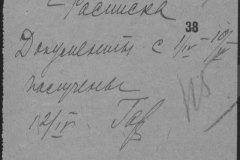 Расписка
38
Документы с 1/IV - 10/IV
получены
12/IV.